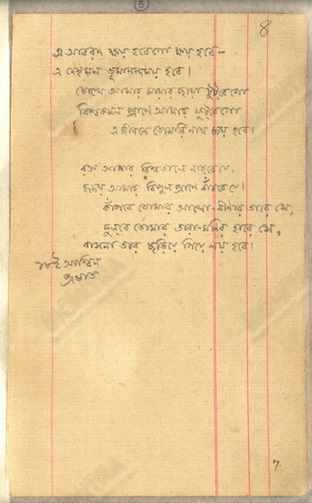 ৪
এ আবরণ ক্ষয় হবেগো ক্ষয় হবে—
এ দেহমন ভূমানন্দময় হবে।
চোখে আমার মায়ার ছায়া টুটবেগো
বিশ্বকমল প্রাণে আমার ফুটবেগো
এ জীবনে তোমারি নাথ জয় হবে।
রক্ত আমার বিশ্বতালে নাচবে যে,
হৃদয় আমার বিপুল প্রাণে বাঁচবে যে।
কাঁপবে তোমার আলো-বীণার তারে সে,
দুলবে তোমার তারা-মণির হারে সে,
বাসনা তার ছড়িয়ে গিয়ে লয় হবে।
১৮ই আশ্বিন
প্রভাত
7